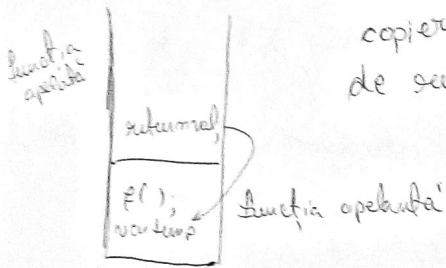 funcția
apelată
copier
de
return val;
f( );
var temp
funcția apelantă